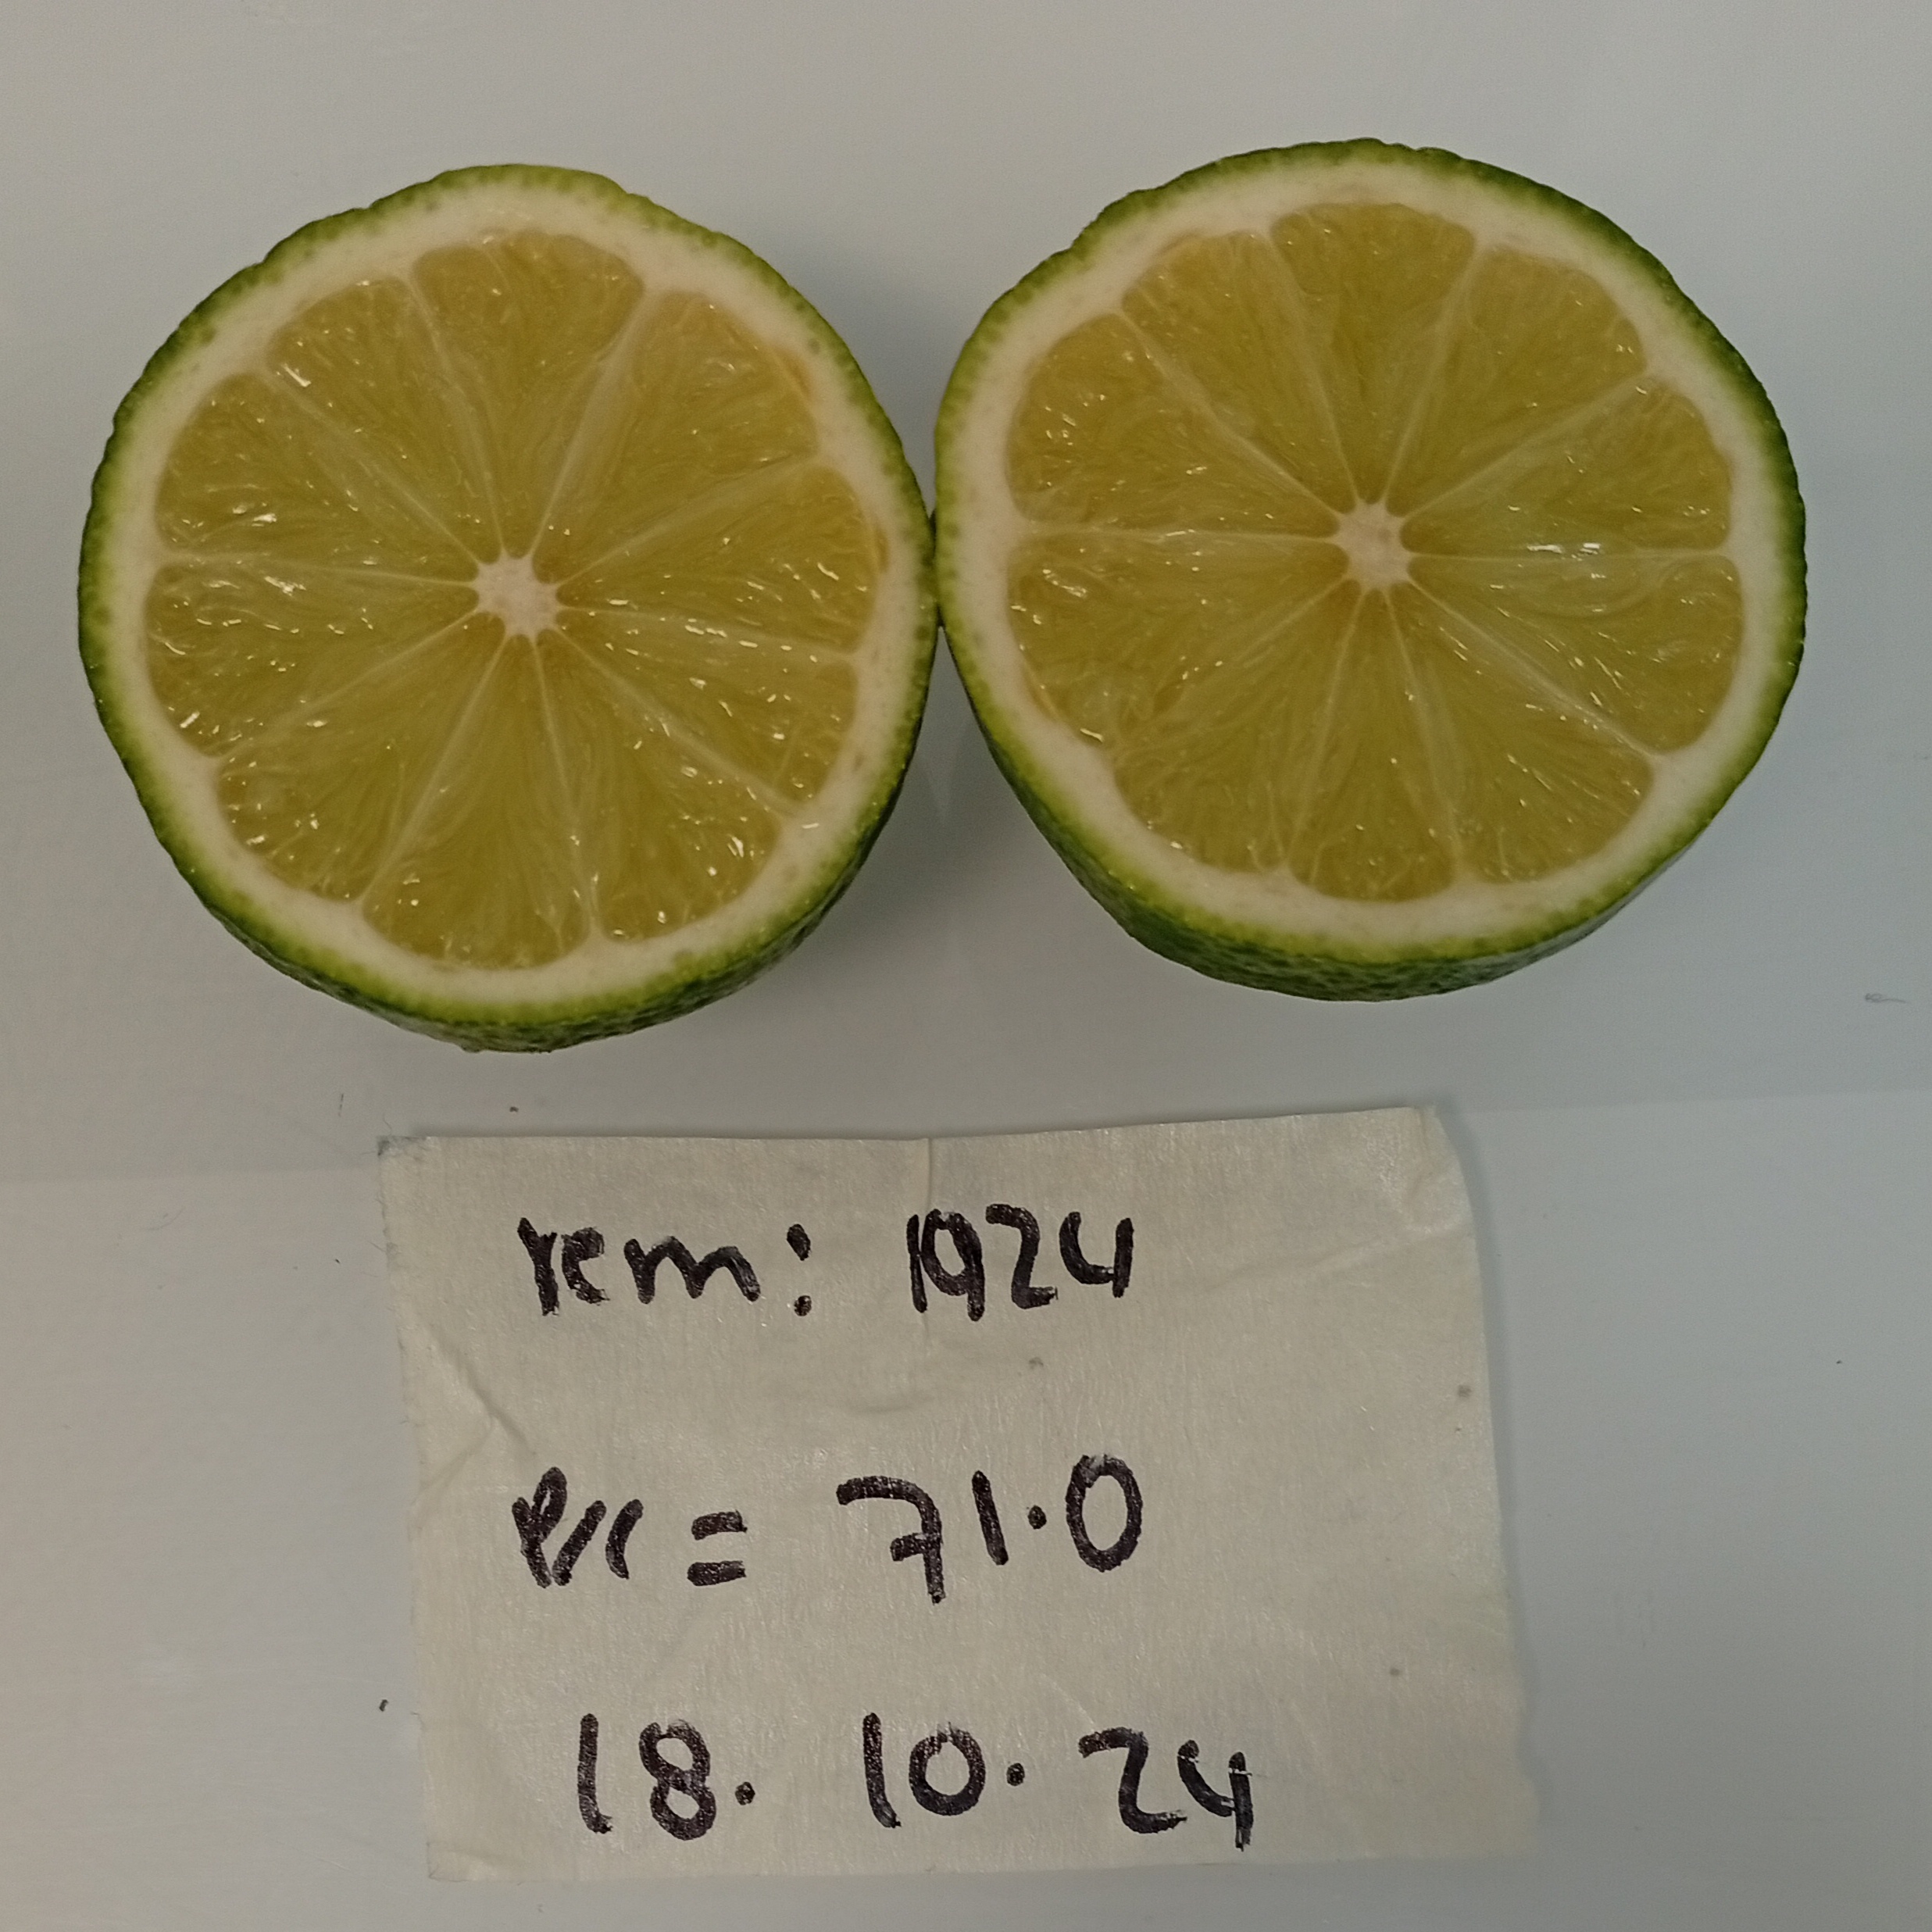 rem: 1924
= 71.0
18. 10. 24